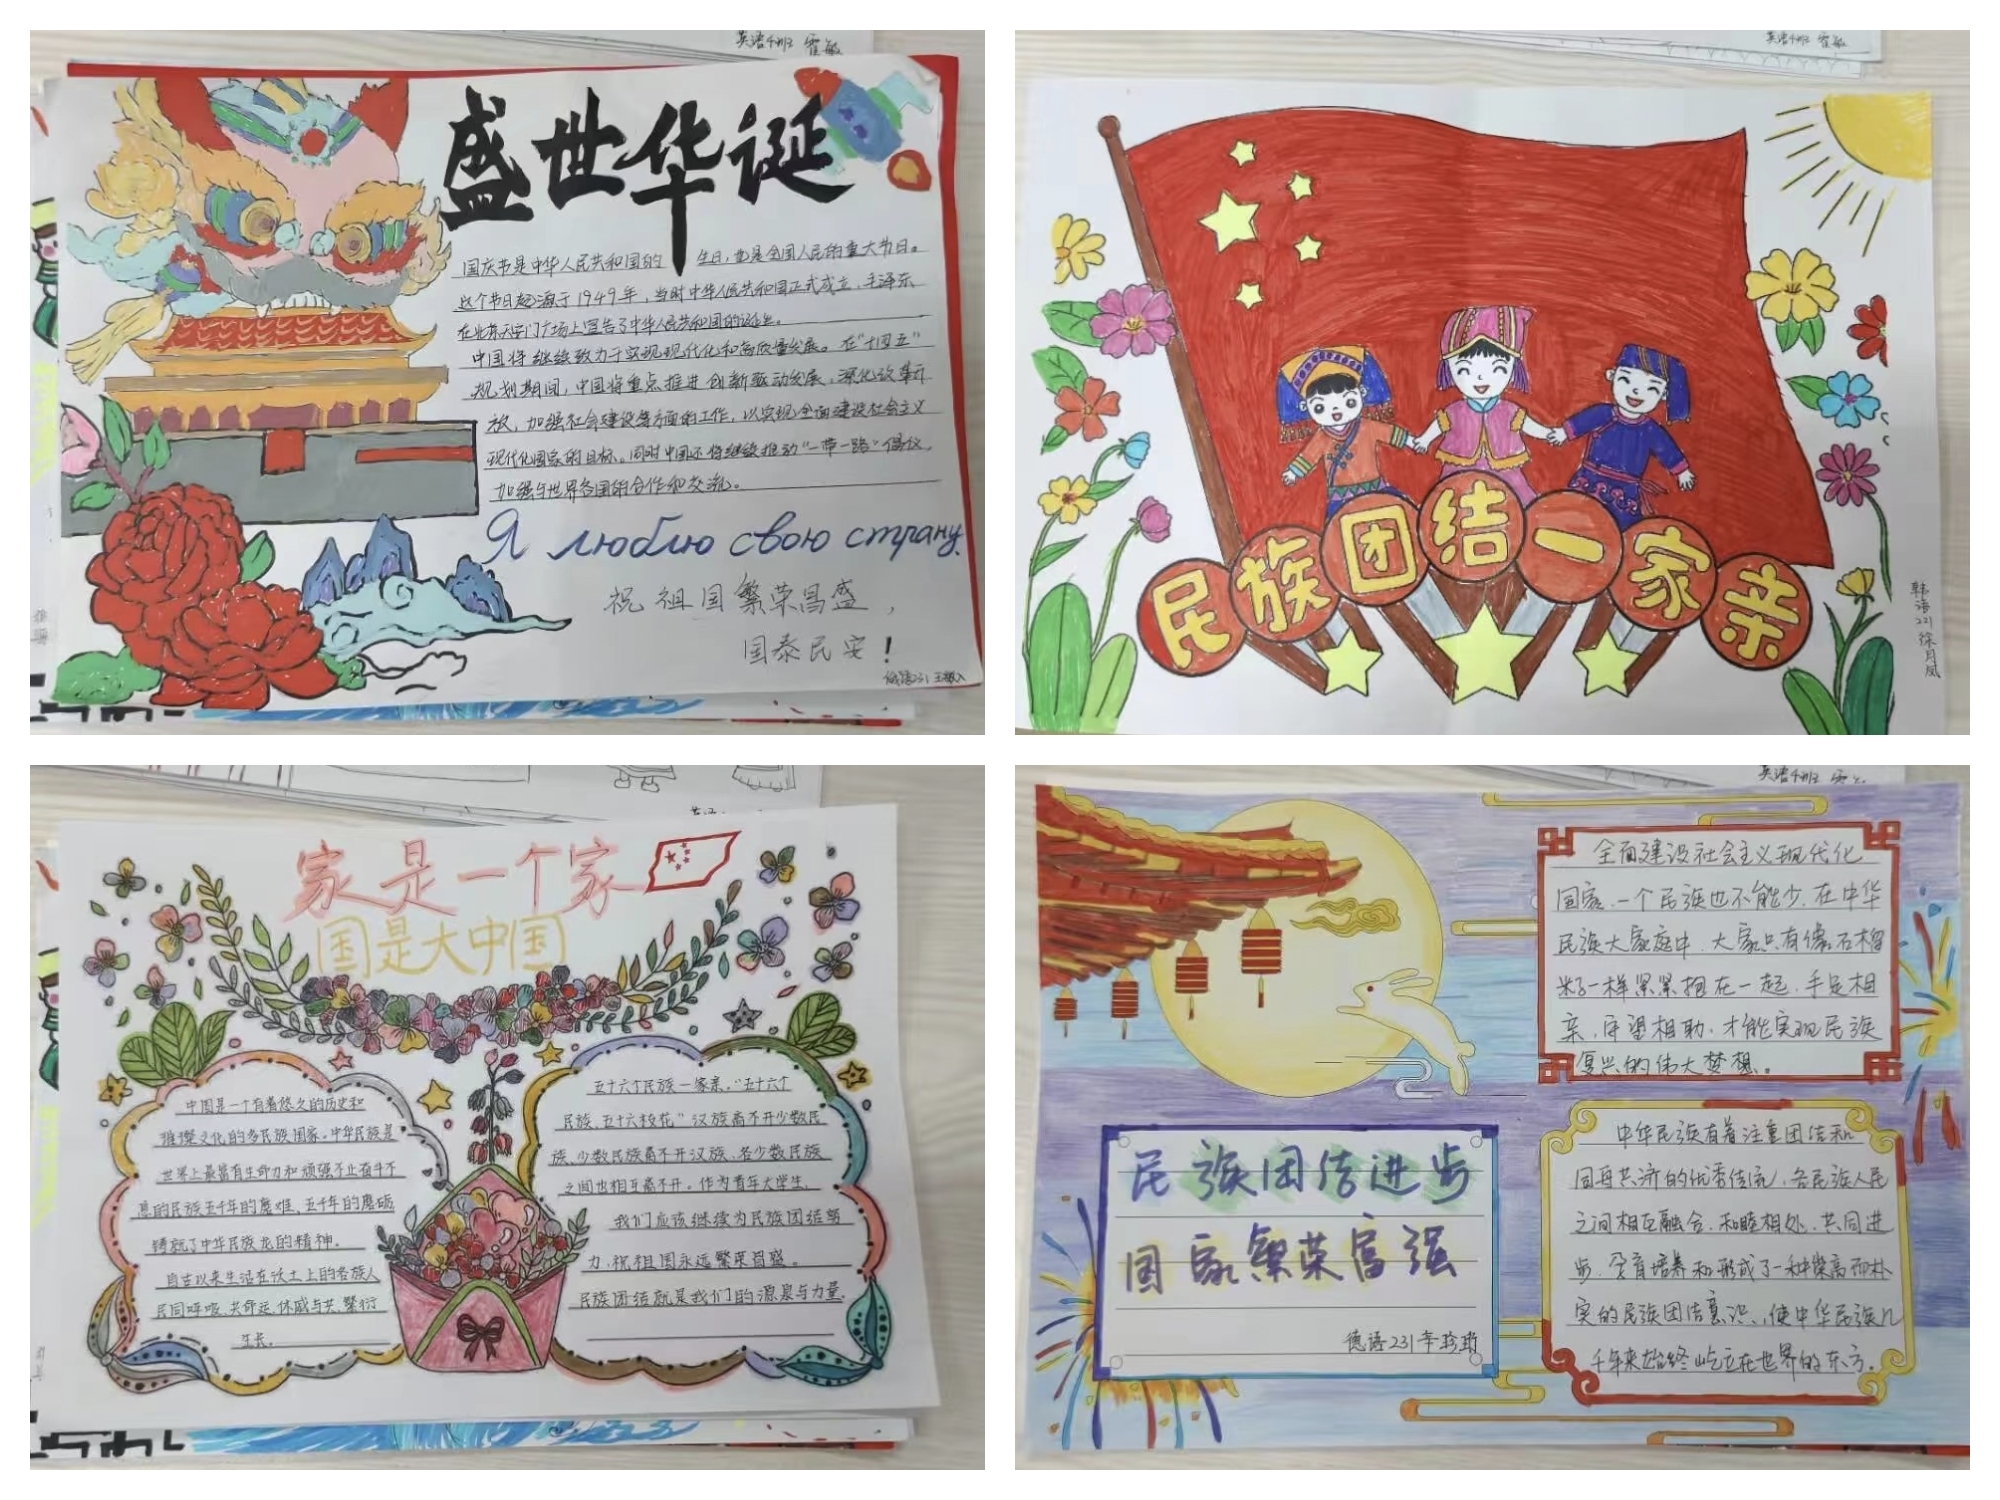 英语4班 霍敏
盛世华诞
国庆节是中华人民共和国的 生日,也是全国人民的重大节日。
这个节日起源于1949年,当时中华人民共和国正式成立,毛泽东
在北京天安门广场上宣告了中华人民共和国的诞生。
中国将继续致力于实现现代化和高质量发展。在“十四五”
规划期间,中国将重点推进创新驱动发展,深化改革开
放,加强社会建设等方面的工作,以实现全面建设社会主义
现代化国家的目标。同时中国还将继续推动“一带一路”倡议,
加强与世界各国的合作和交流。
Я люблю свою страну.
祝祖国繁荣昌盛,
国泰民安!
英语4班 霍敏
民族团结一家亲
韩语221 徐月凤
家是一个家
国是大中国
中国是一个有着悠久的历史和
璀璨文化的多民族国家。中华民族是
世界上最富有生命力和顽强不止奋斗不
息的民族五千年的磨难,五千年的磨砺
铸就了中华民族龙的精神。
自古以来生活在沃土上的各族人
民同呼吸、共命运、休戚与共、繁衍
生长。
五十六个民族一家亲,“五十六个
民族,五十六枝花”汉族离不开少数民
族、少数民族离不开汉族、各少数民族
之间也相互离不开。作为青年大学生,
我们应该继续为民族团结努
力,祝祖国永远繁荣昌盛。
民族团结就是我们的源泉与力量.
英语4班
全面建设社会主义现代化
国家,一个民族也不能少.在中华
民族大家庭中,大家只有像石榴
籽一样紧紧抱在一起,手足相
亲,守望相助,才能实现民族
复兴的伟大梦想。
民族团结进步
国家繁荣富强
德语231
中华民族有着注重团结和
同舟共济的优秀传统,各民族人民
之间相互融合、和睦相处、共同进
步,孕育培养和形成了一种崇高而朴
实的民族团结意识,使中华民族几
千年来始终屹立在世界的东方。